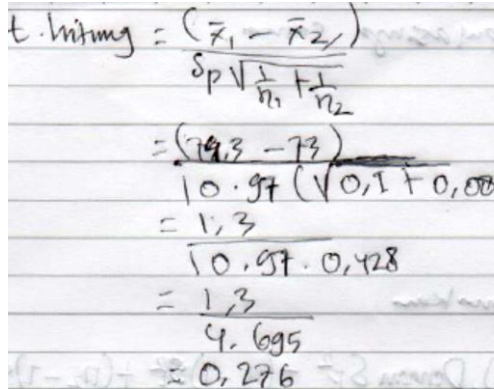 t.hitung = (x̄₁ - x̄₂)
Sp√1/n₁ + 1/n₂
= (74,3 - 73)
10.97 (√0,1 + 0,08
= 1,3
10.97 . 0,428
= 1,3
4.695
= 0,276